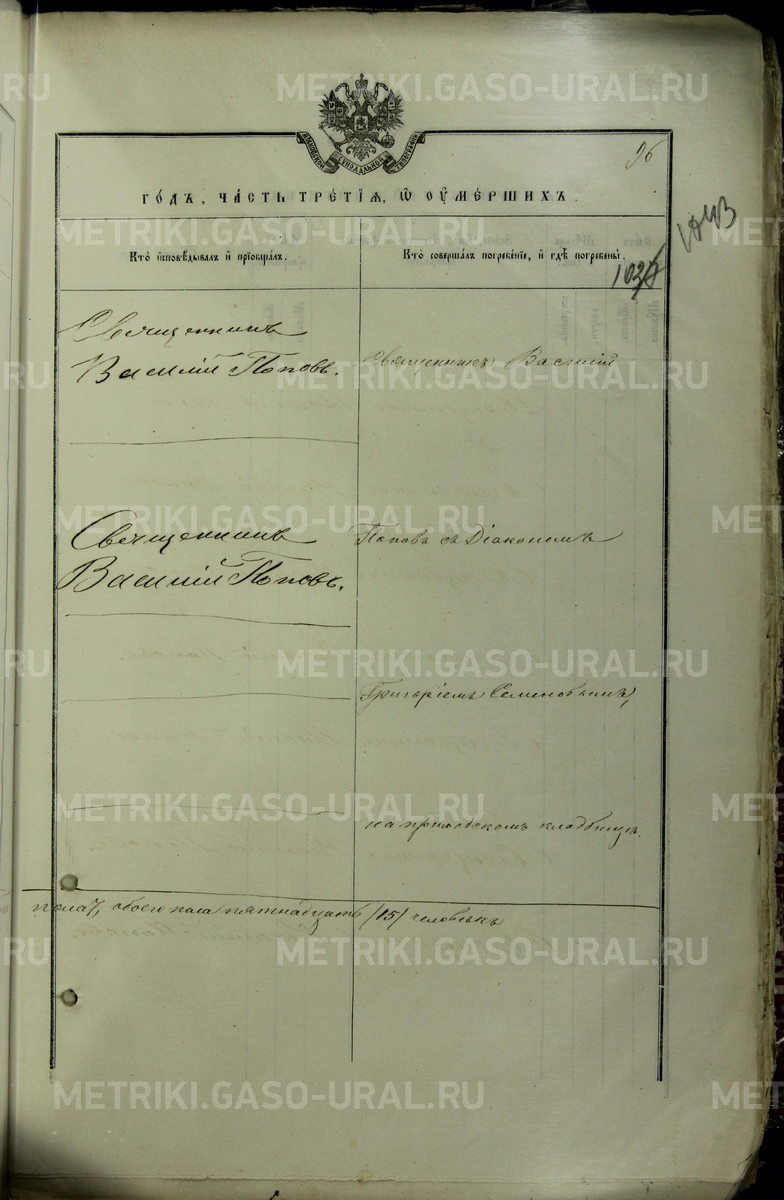 МОСКОВСКОЙ СѴНОДАЛЬНОЙ ТИПОГРАФІИ
96
го́дъ, ча́сть тре́тїѧ, ѡ҆ ᲂу҆ме́ршихъ.
1043
Кто̀ и҆сповѣ́дывалъ и҆ прїобща́лъ.
Кто̀ соверша́лъ погребе́нїе, и҆ гдѣ̀ погребены̀.
Священникъ
Василій Поповъ.
Священникъ Василій
Священникъ
Василій Поповъ.
Поповъ съ Діакономъ
Григоріемъ Семеновымъ,
на приходскомъ кладбищѣ.
пола 7, обоего пола пятнадцать /15/ человѣкъ
METRIKI.GASO-URAL.RU